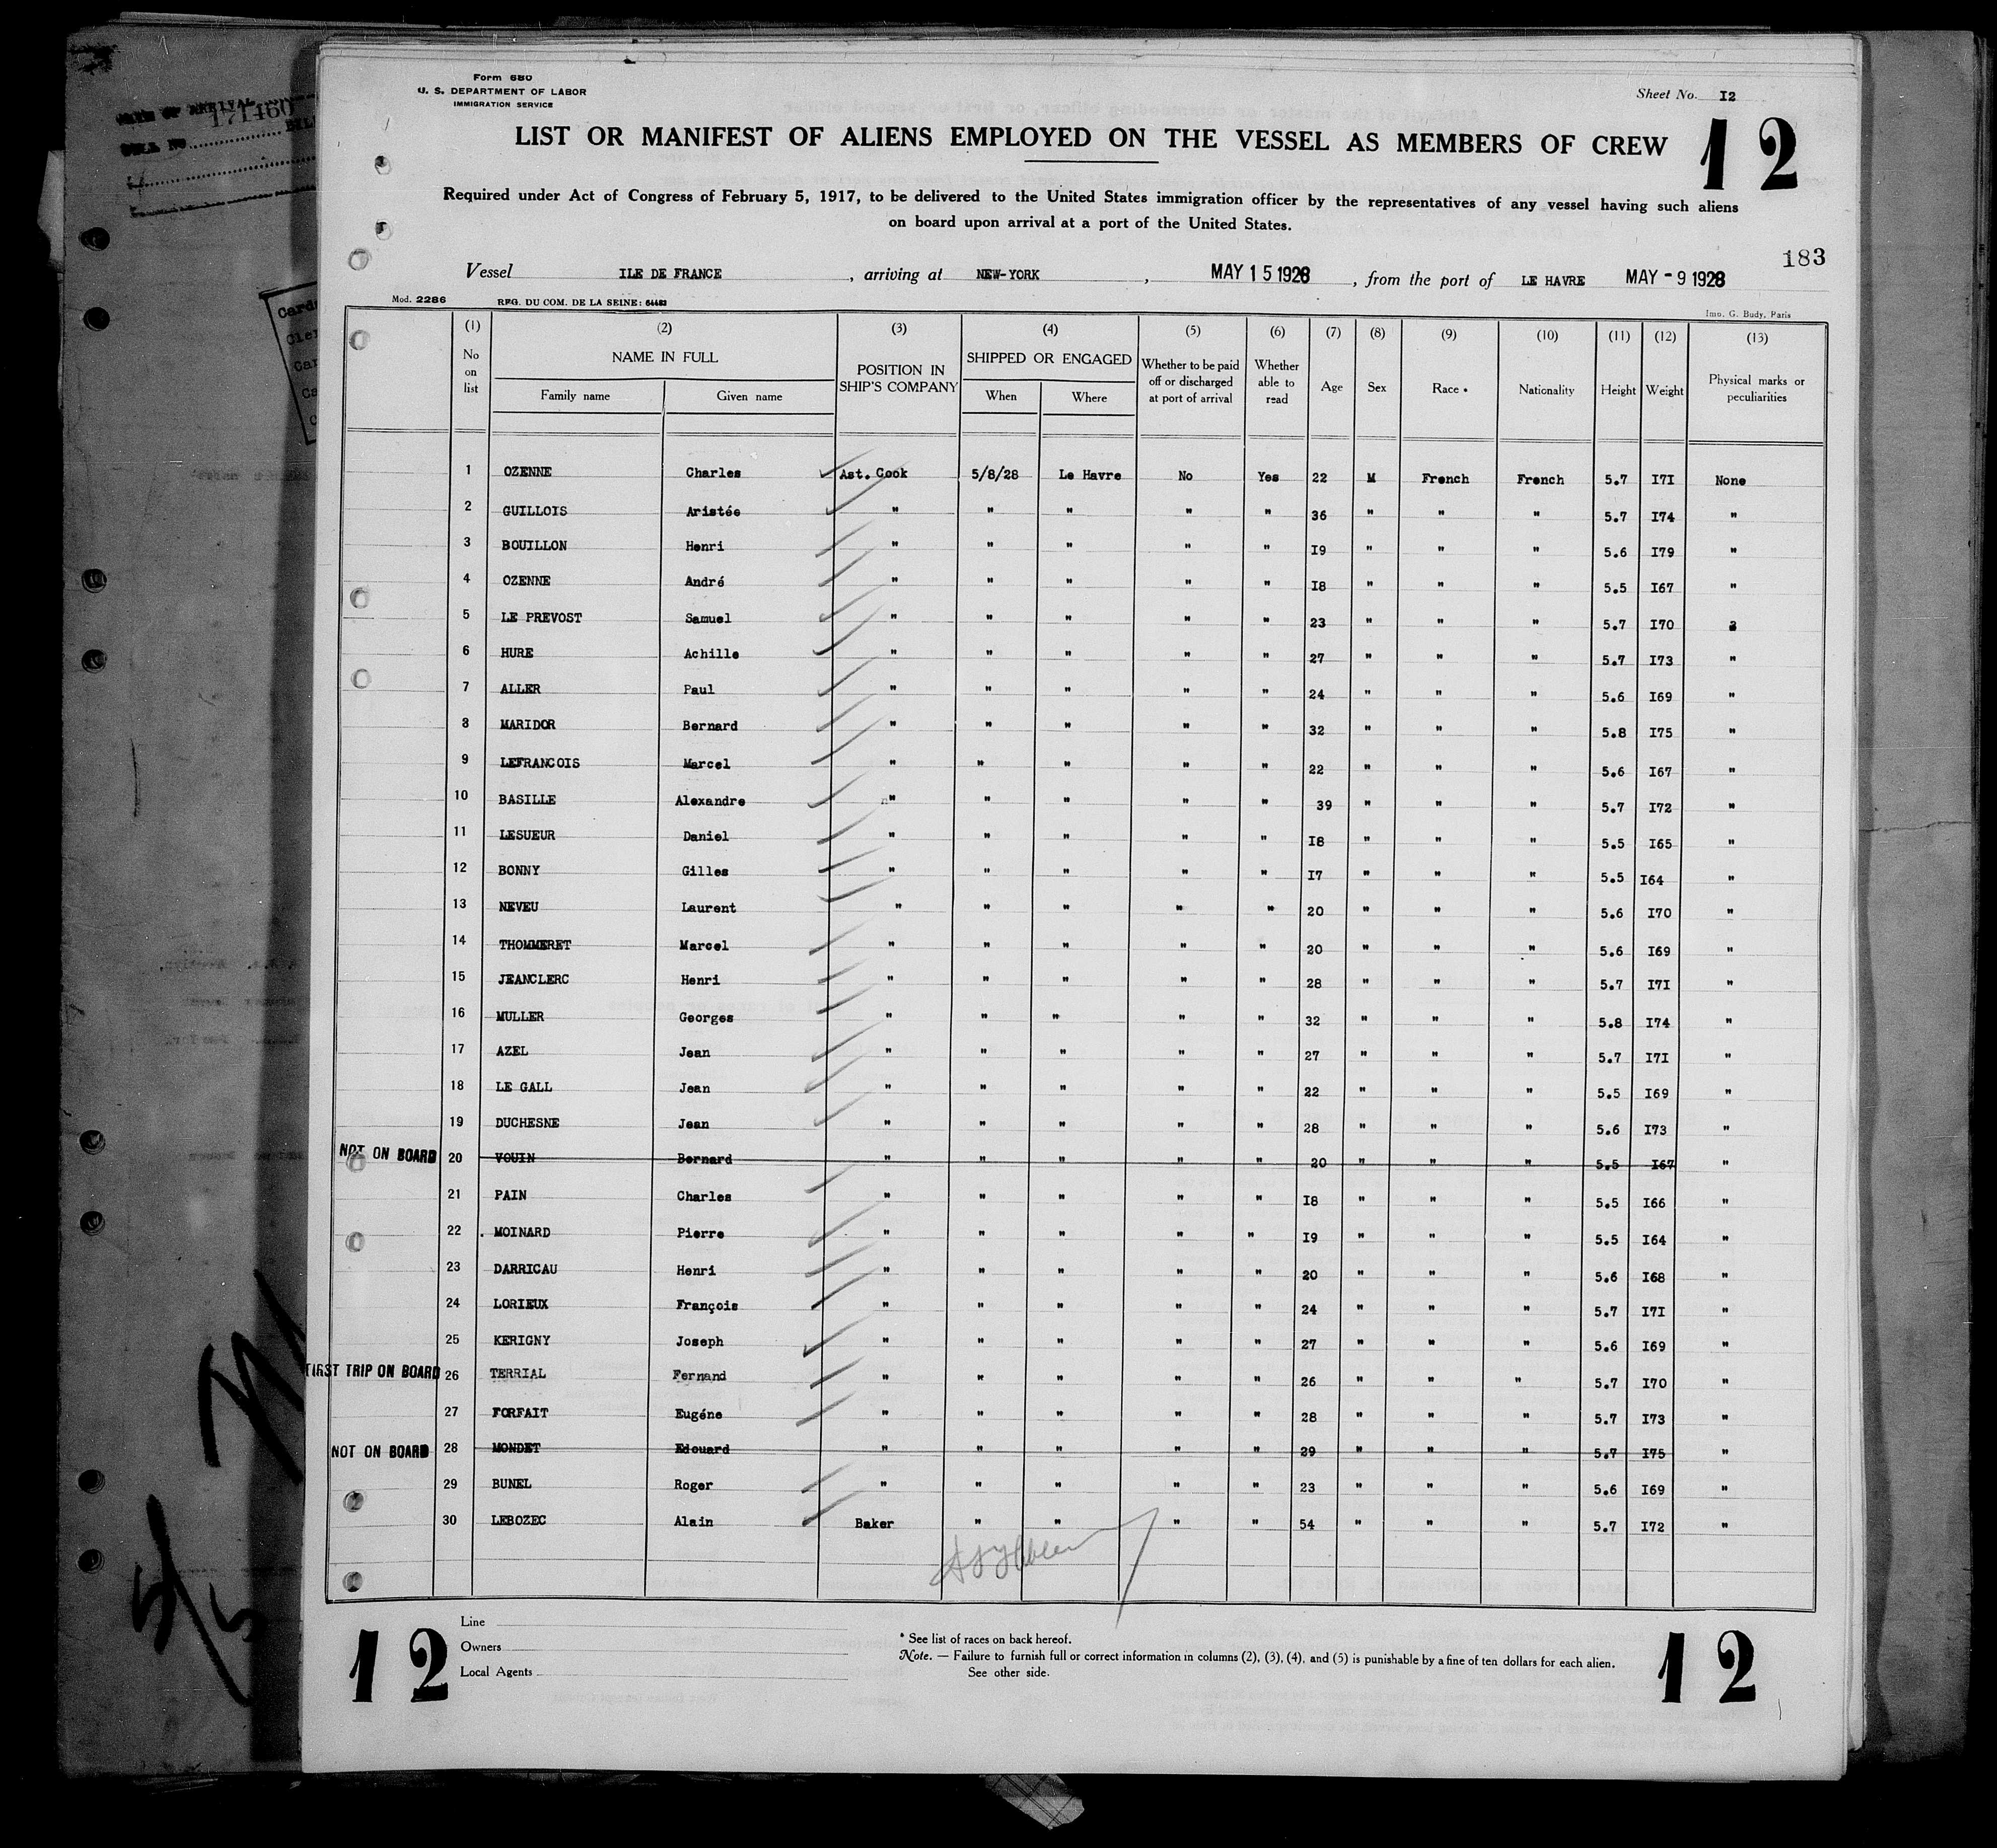 Form 680
U. S. DEPARTMENT OF LABOR
IMMIGRATION SERVICE
Sheet No. I2
LIST OR MANIFEST OF ALIENS EMPLOYED ON THE VESSEL AS MEMBERS OF CREW
12
Required under Act of Congress of February 5, 1917, to be delivered to the United States immigration officer by the representatives of any vessel having such aliens
on board upon arrival at a port of the United States.
183
Vessel ILE DE FRANCE, arriving at NEW-YORK, MAY 15 1928, from the port of LE HAVRE MAY - 9 1928
Mod. 2286 REG. DU COM. DE LA SEINE: 64482
Imp. G. Budy, Paris
(1) (2) (3) (4) (5) (6) (7) (8) (9) (10) (11) (12) (13)
No on list NAME IN FULL Family name Given name POSITION IN SHIP'S COMPANY SHIPPED OR ENGAGED When Where Whether to be paid off or discharged at port of arrival Whether able to read Age Sex Race * Nationality Height Weight Physical marks or peculiarities
1 OZENNE Charles Ast. Cook 5/8/28 Le Havre No Yes 22 M French French 5.7 I7I None
2 GUILLOIS Aristée " " " " " 36 " " " 5.7 I74 "
3 BOUILLON Henri " " " " " I9 " " " 5.6 I79 "
4 OZENNE André " " " " " I8 " " " 5.5 I67 "
5 LE PREVOST Samuel " " " " " 23 " " " 5.7 I70
6 HURE Achille " " " " " 27 " " " 5.7 I73 "
7 ALLER Paul " " " " " 24 " " " 5.6 I69 "
8 MARIDOR Bernard " " " " " 32 " " " 5.8 I75 "
9 LEFRANCOIS Marcel " " " " " 22 " " " 5.6 I67 "
10 BASILLE Alexandre " " " " " 39 " " " 5.7 I72 "
11 LESUEUR Daniel " " " " " I8 " " " 5.5 I65 "
12 BONNY Gilles " " " " " I7 " " " 5.5 I64 "
13 NEVEU Laurent " " " " " 20 " " " 5.6 I70 "
14 THOMMERET Marcel " " " " " 20 " " " 5.6 I69 "
15 JEANCLERC Henri " " " " " 28 " " " 5.7 I7I "
16 MULLER Georges " " " " " 32 " " " 5.8 I74 "
17 AZEL Jean " " " " " 27 " " " 5.7 I7I "
18 LE GALL Jean " " " " " 22 " " " 5.5 I69 "
19 DUCHESNE Jean " " " " " 28 " " " 5.6 I73 "
NOT ON BOARD 20 VOUIN Bernard " " " " " 20 " " " 5.5 I67 "
21 PAIN Charles " " " " " I8 " " " 5.5 I66 "
22 MOINARD Pierre " " " " " I9 " " " 5.5 I64 "
23 DARRICAU Henri " " " " " 20 " " " 5.6 I68 "
24 LORIEUX François " " " " " 24 " " " 5.7 I7I "
25 KERIGNY Joseph " " " " " 27 " " " 5.6 I69 "
FIRST TRIP ON BOARD 26 TERRIAL Fernand " " " " " 26 " " " 5.7 I70 "
27 FORFAIT Eugéne " " " " " 28 " " " 5.7 I73 "
NOT ON BOARD 28 MONDET Edouard " " " " " 29 " " " 5.7 I75 "
29 BUNEL Roger " " " " " 23 " " " 5.6 I69 "
30 LEBOZEC Alain Baker " " " " 54 " " " 5.7 I72 "
12
Line
Owners
Local Agents
* See list of races on back hereof.
Note. — Failure to furnish full or correct information in columns (2), (3), (4), and (5) is punishable by a fine of ten dollars for each alien.
See other side.
12
171460
5/5